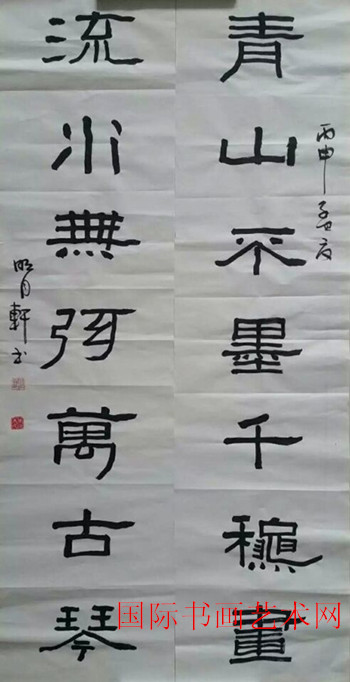 青山不墨千穐畫
丙申孟夏
流水無弦萬古琴
明月軒书
国际书画艺术网